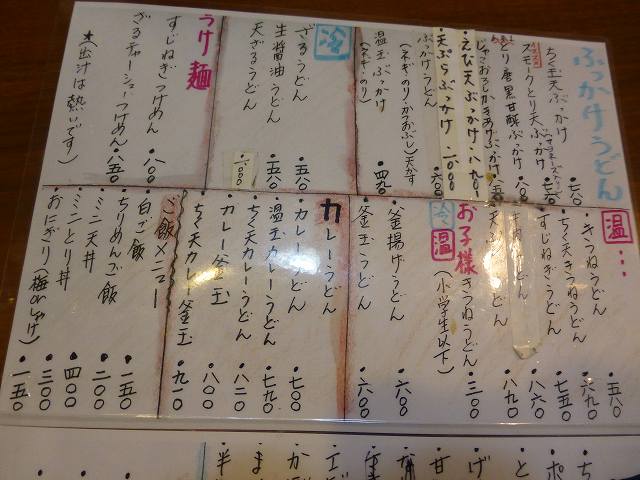 ぶっかけうどん
ちく玉天ぶっかけ ・七八〇
スモークとり天ぶっかけ
とり唐黒甘酢ぶっかけ
じゃこおろしかきあげぶっかけ
・えび天ぶっかけ・八九〇
・天ぷらぶっかけ・一〇〇〇
ぶっかけうどん
(ネギ・のり・かつおぶし)天かす
温玉ぶっかけ ・四九〇
(ネギ・のり)
冷
ざるうどん ・五〇〇
生醤油うどん ・五八〇
天ざるうどん ・一〇〇〇
つけ麺
すじねぎつけめん ・八〇〇
ざるチャーシューつけめん・八五〇
★(出汁は熱いです)
温…
・きつねうどん ・五八〇
・ちく天きつねうどん ・六九〇
・すじねぎうどん ・七五〇
うどん ・八六〇
・天ぷらうどん ・八九〇
お子様きつねうどん ・三〇〇
(小学生以下)
冷 温
・釜揚げうどん ・六〇〇
・釜玉うどん ・六〇〇
カレーうどん
・カレーうどん ・七〇〇
・温玉カレーうどん ・七九〇
・ちく天カレーうどん ・八二〇
・カレー釜玉 ・八〇〇
・ちく天カレー釜玉 ・九一〇
ご飯メニュー
・白ご飯 ・一五〇
・ちりめんご飯 ・二〇〇
・ミニ天丼 ・四〇〇
・ミニとり丼 ・三〇〇
・おにぎり(梅orしゃけ) ・一五〇
・ち
・ポ
・と
・げ
・甘
・か
・ま
・半